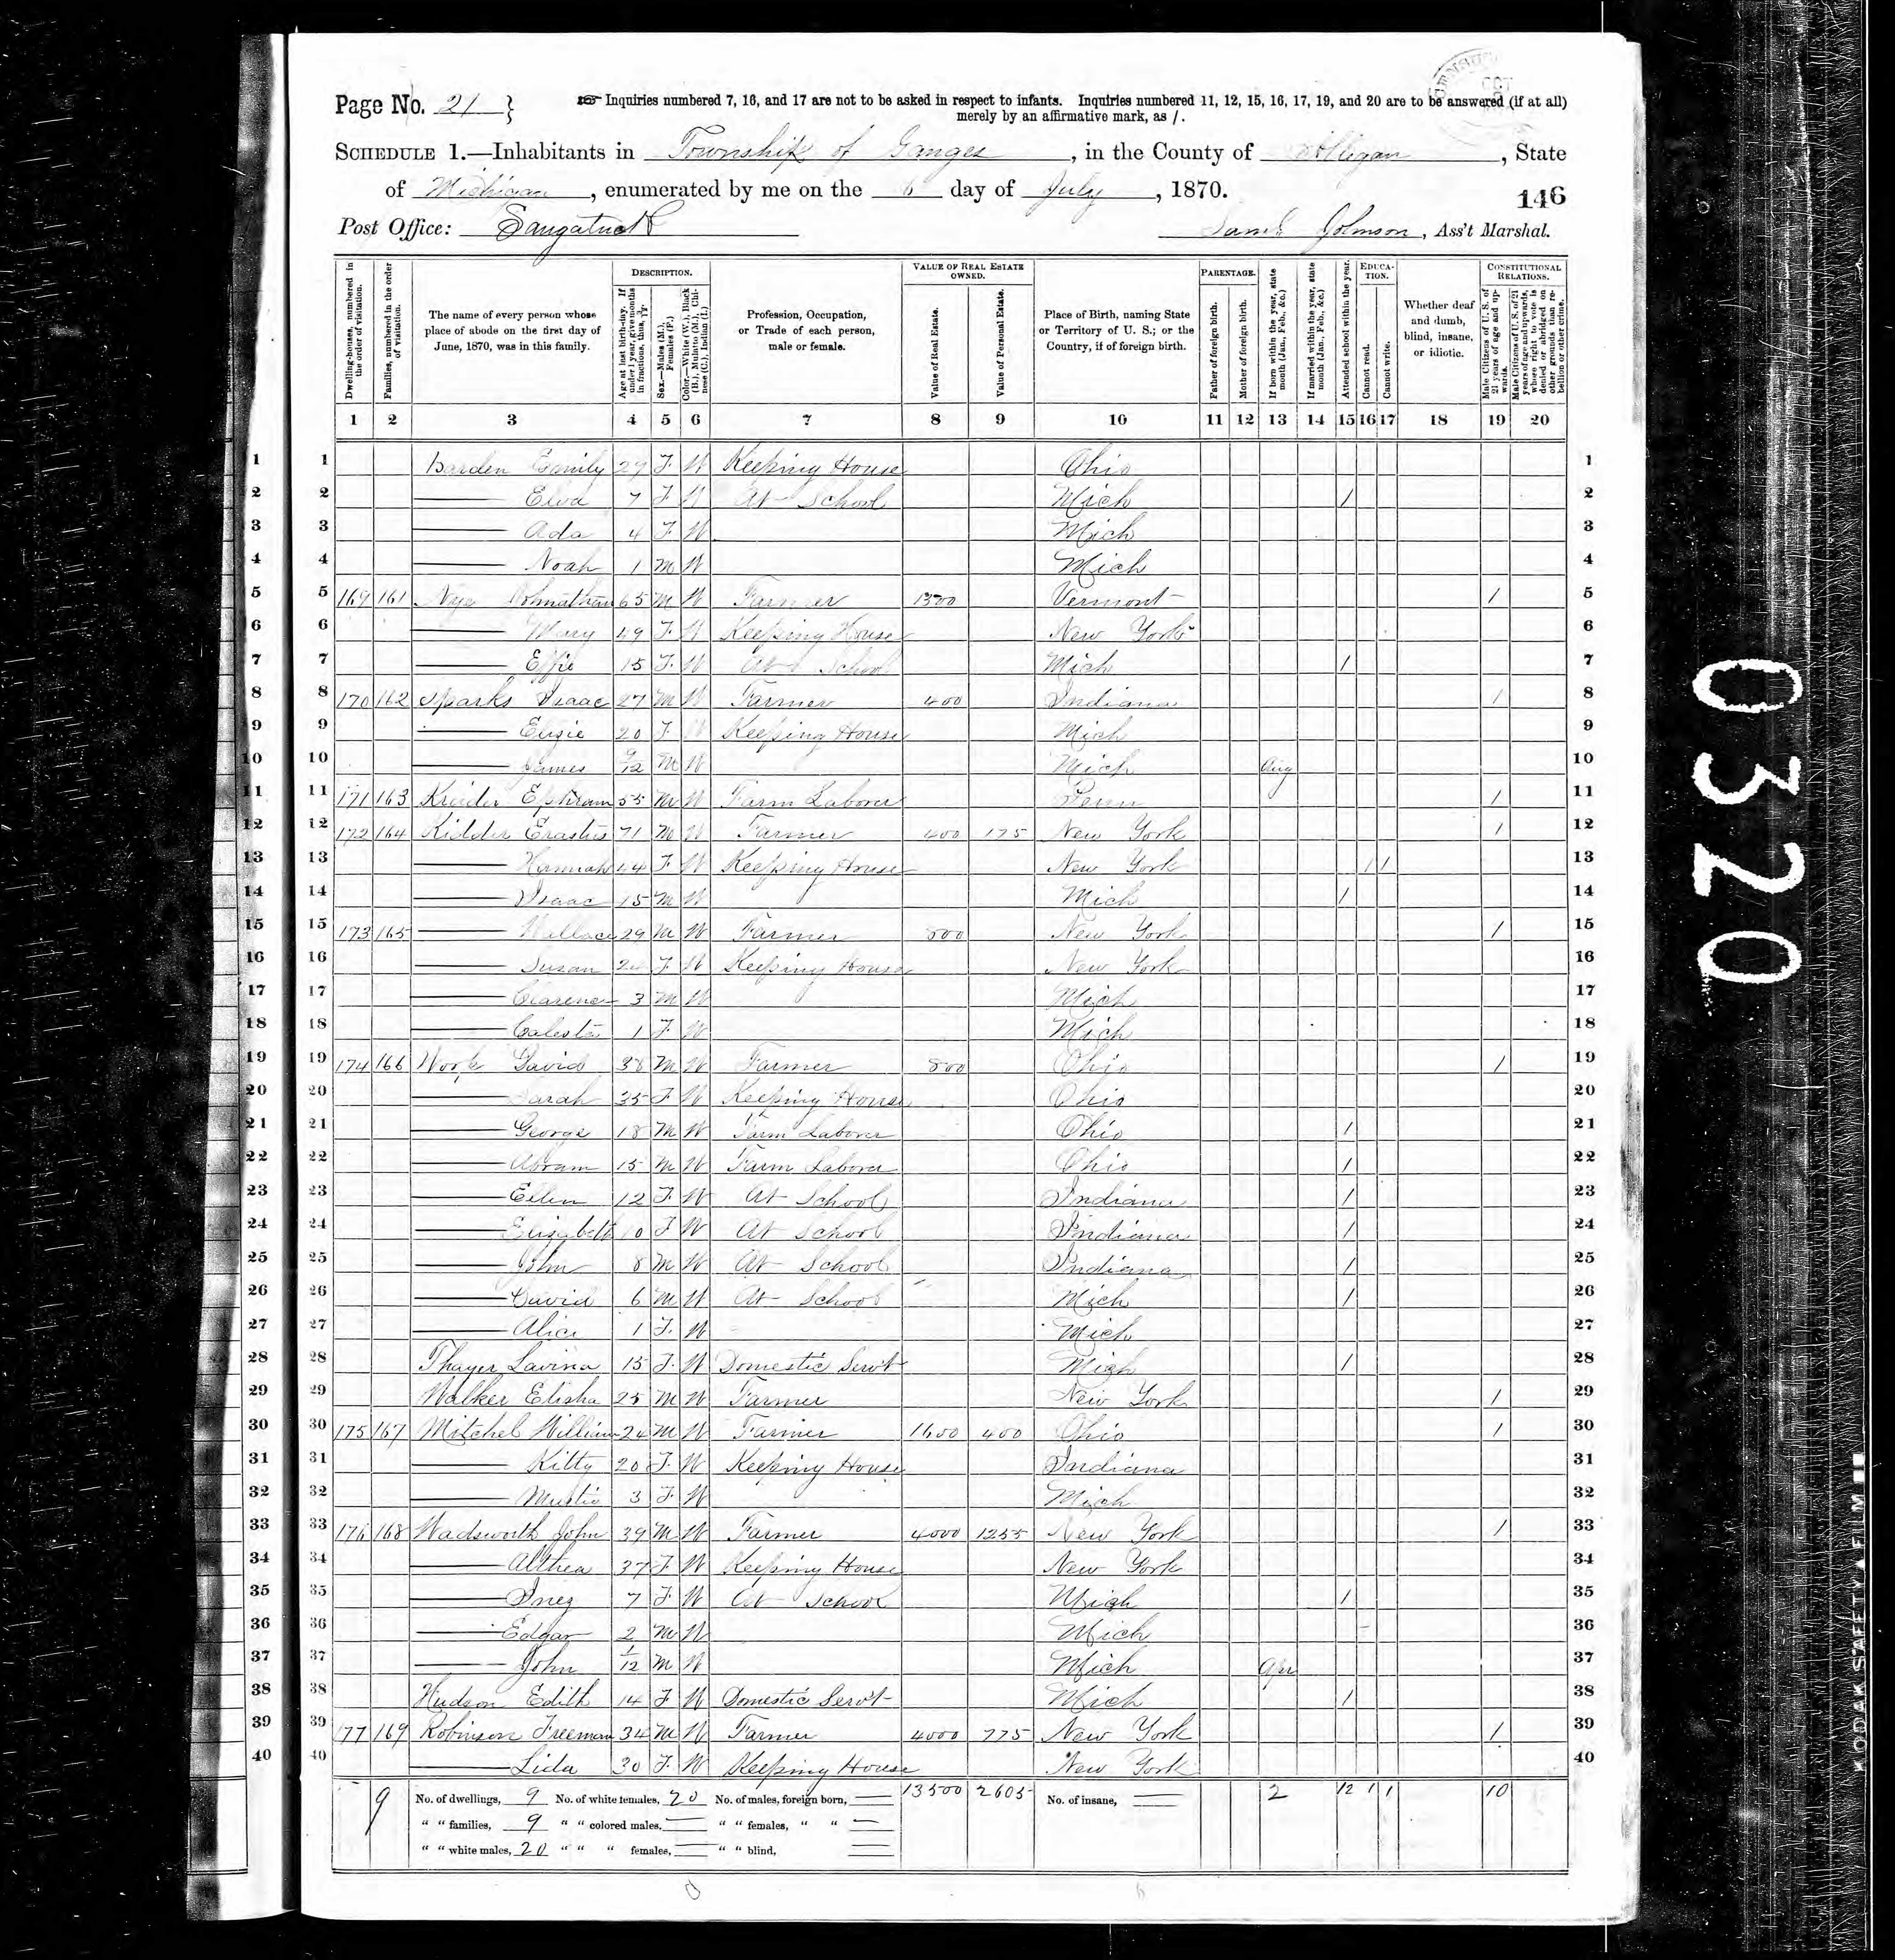 Page No. 21 }
Inquiries numbered 7, 16, and 17 are not to be asked in respect to infants. Inquiries numbered 11, 12, 15, 16, 17, 19, and 20 are to be answered (if at all)
merely by an affirmative mark, as /.
SCHEDULE 1.—Inhabitants in Township of Ganges, in the County of Allegan, State
of Michigan, enumerated by me on the 6 day of July, 1870.
146
Post Office: Saugatuck
Saml. Johnson, Ass't Marshal.
Dwelling-houses, numbered in the order of visitation.
Families, numbered in the order of visitation.
The name of every person whose place of abode on the first day of June, 1870, was in this family.
DESCRIPTION.
Age at last birth-day. If under 1 year, give months in fractions, thus, 3/12.
Sex.—Males (M.), Females (F.)
Color.—White (W.), Black (B.), Mulatto (M.), Chinese (C.), Indian (I.)
Profession, Occupation, or Trade of each person, male or female.
VALUE OF REAL ESTATE OWNED.
Value of Real Estate.
Value of Personal Estate.
Place of Birth, naming State or Territory of U. S.; or the Country, if of foreign birth.
PARENTAGE.
Father of foreign birth.
Mother of foreign birth.
If born within the year, state month (Jan., Feb., &c.)
If married within the year, state month (Jan., Feb., &c.)
Attended school within the year.
EDUCATION.
Cannot read.
Cannot write.
Whether deaf and dumb, blind, insane, or idiotic.
CONSTITUTIONAL RELATIONS.
Male Citizens of U. S. of 21 years of age and upwards.
Male Citizens of U. S. of 21 years of age and upwards, whose right to vote is denied or abridged on other grounds than rebellion or other crime.
1 2 3 4 5 6 7 8 9 10 11 12 13 14 15 16 17 18 19 20
1 1 Barden Emily 29 F W Keeping House Ohio 1
2 2 —— Elva 7 F W At School Mich / 2
3 3 —— Ada 4 F W Mich 3
4 4 —— Noah 1 M W Mich 4
5 5 169 161 Nye Johnathan 65 M W Farmer 1300 Vermont / 5
6 6 —— Mary 49 F W Keeping House New York 6
7 7 —— Effie 15 F W At School Mich / 7
8 8 170 162 Sparks Isaac 27 M W Farmer 400 Indiana / 8
9 9 —— 20 F W Keeping House Mich 9
10 10 —— James 9/12 M W Mich Aug 10
11 11 171 163 Kreider Ephram 55 M W Farm Laborer Penn / 11
12 12 172 164 Kidder Erastus 71 M W Farmer 400 175 New York / 12
13 13 —— Hannah 44 F W Keeping House New York / / 13
14 14 —— Isaac 15 M W Mich / 14
15 15 173 165 —— Wallace 29 M W Farmer New York / 15
16 16 —— Susan F W Keeping House New York 16
17 17 —— Clarence 3 M W Mich 17
18 18 —— Calesta 1 F W Mich 18
19 19 174 166 David 38 M W Farmer 800 Ohio / 19
20 20 —— Sarah 35 F W Keeping House Ohio 20
21 21 —— George 18 M W Farm Laborer Ohio / 21
22 22 —— Abram 15 M W Farm Laborer Ohio / 22
23 23 —— Ellen 12 F W At School Indiana / 23
24 24 —— Elizabeth 10 F W At School Indiana / 24
25 25 —— John 8 M W At School Indiana / 25
26 26 —— David 6 M W At School Mich / 26
27 27 —— Alice 1 F W Mich 27
28 28 Thayer Lavina 15 F W Domestic Servt Mich / 28
29 29 Walker Elisha 25 M W Farmer New York / 29
30 30 175 167 Mitchel William 24 M W Farmer 1600 400 Ohio / 30
31 31 —— Kitty 20 F W Keeping House Indiana 31
32 32 —— 3 F W Mich 32
33 33 176 168 Wadsworth John 39 M W Farmer 4000 1255 New York / 33
34 34 —— Althea 37 F W Keeping House New York 34
35 35 —— Inez 7 F W At School Mich / 35
36 36 —— Edgar 2 M W Mich 36
37 37 —— John 1/12 M W Mich Apr 37
38 38 Hudson Edith 14 F W Domestic Servt Mich / 38
39 39 177 169 Robinson Freeman 34 M W Farmer 4000 775 New York / 39
40 40 —— Lida 30 F W Keeping House New York 40
9 No. of dwellings, 9 No. of white females, 20 No. of males, foreign born, — 13500 2605 No. of insane, — 2 12 1 1 10
" " families, 9 " " colored males, — " " females, " " —
" " white males, 20 " " " females, — " " blind, —
0320
KODAK SAFETY FILM